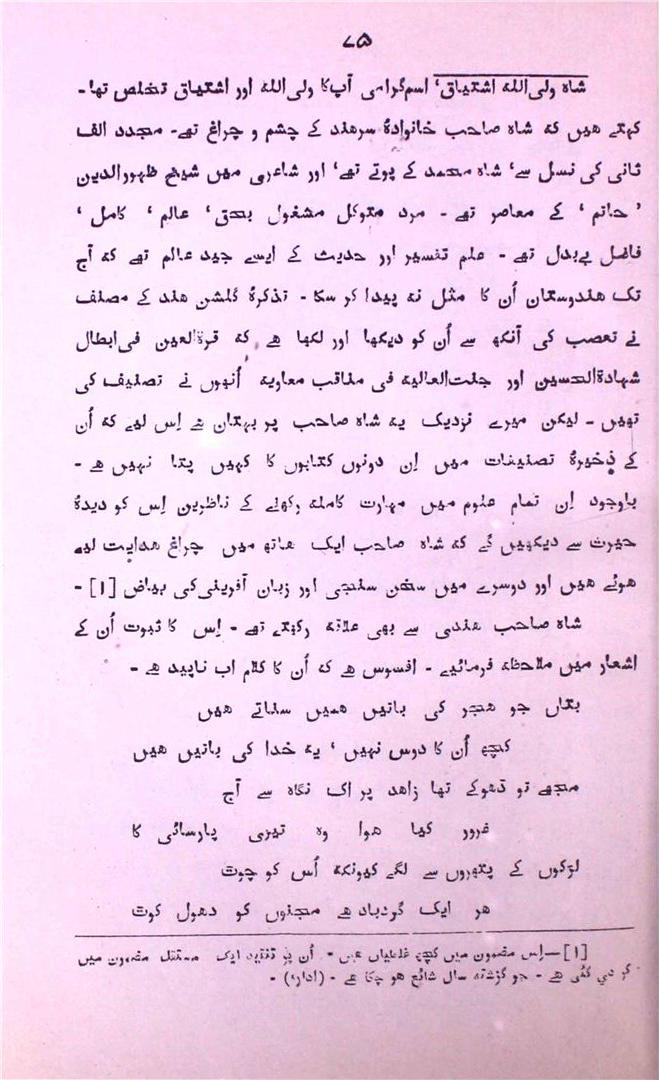 ۷۵
شاہ ولی‌اللہ اشتیاق، اسم گرامی آپ کا ولی‌اللہ اور اشتیاق تخلص تھا۔
کہتے ھیں کہ شاہ صاحب خانوادۂ سرھند کے چشم و چراغ تھے۔ مجدد الف
ثانی کی نسل سے، شاہ محمد کے پوتے تھے، اور شاعری میں شیخ ظہورالدین
'حاتم' کے معاصر تھے۔ مرد متوکل مشغول بحق، عالم، کامل،
فاضل بےبدل تھے۔ علم تفسیر اور حدیث کے ایسے جید عالم تھے کہ آج
تک ھندوستان اُن کا مثل نہ پیدا کر سکا۔ تذکرۂ گلشن ھند کے مصنف
نے تعصب کی آنکھ سے اُن کو دیکھا اور لکھا ھے کہ قرۃالعین فی‌ابطال
شہادۃالحسین اور جنت‌العالیہ فی مناقب معاویہ اُنھوں نے تصنیف کی
تھیں۔ لیکن میرے نزدیک یہ شاہ صاحب پر بہتان ھے اِس لیے کہ اُن
کے ذخیرۂ تصنیفات میں اِن دونوں کتابوں کا کہیں پتا نہیں ھے۔
باوجود اِن تمام علوم میں مہارت کاملہ رکھنے کے ناظرین اِس کو دیدۂ
حیرت سے دیکھیں گے کہ شاہ صاحب ایک ھاتھ میں چراغ ھدایت لیے
ھوئے ھیں اور دوسرے میں سخن سنجی اور زبان آفرینی کی بیاض [۱]۔
شاہ صاحب ھندی سے بھی علاقہ رکھتے تھے۔ اِس کا ثبوت اُن کے
اشعار میں ملاحظہ فرمائیے۔ افسوس ھے کہ اُن کا کلام اب ناپید ھے۔
بتاں جو ھجر کی باتیں ھمیں سناتے ھیں
کچھ اُن کا دوس نہیں، یہ خدا کی باتیں ھیں
مجھے تو دھوکے تھا زاھد پر اک نگاہ سے آج
غرور کیا ھوا وہ تیری پارسائی کا
لڑکوں کے پتھروں سے لگے کیونکہ اُس کو چوٹ
ھر ایک گردباد ھے مجنوں کو دھول کوٹ
[۱]—اِس مضمون میں کچھ غلطیاں ھیں۔ اُن پر تنقید ایک مستقل مضمون میں
کر دی گئی ھے۔ جو گزشتہ سال شائع ھو چکا ھے۔ (ادارہ)۔